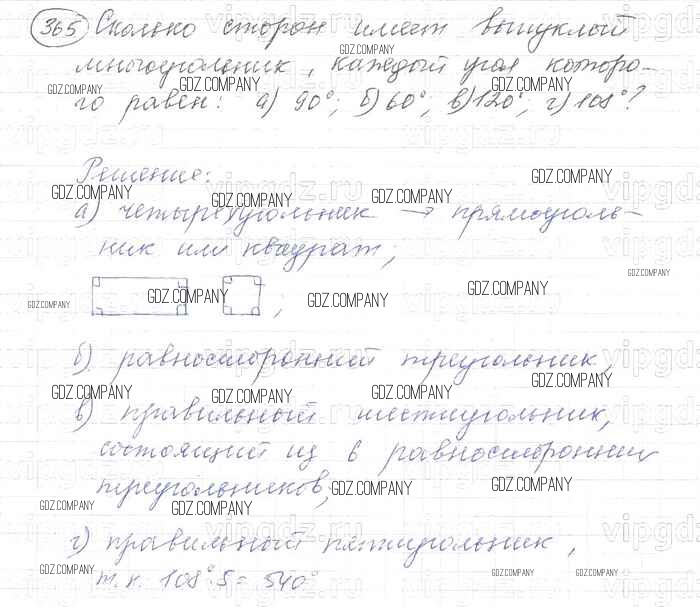 365 Сколько сторон имеет выпуклый
многоугольник, каждый угол которо-
го равен: а) 90°; б) 60°; в) 120°; г) 108°?
Решение:
а) четырехугольник → прямоуголь-
ник или квадрат;
б) равносторонний треугольник,
в) правильный шестиугольник,
состоящий из 6 равносторонних
треугольников;
г) правильный пятиугольник,
т.к. 108°·5 = 540°
GDZ.COMPANY
vipgdz.ru